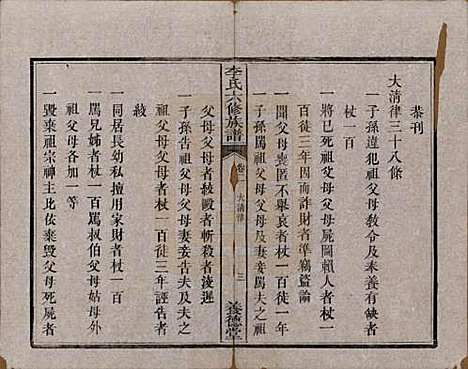 恭刊
大清律三十八條
一子孫違犯祖父母敎令及奉養有缺者
杖一百
一將已死祖父母父母屍圖賴人者杖一
百徒三年因而詐財者準竊盜論
一聞父母喪匿不舉哀者杖一百徒一年
一子孫罵祖父母父母及妻妾罵夫之祖
李氏六修族譜
卷二
大清律
三
養德堂
父母父母者絞毆者斬殺者凌遲
一子孫告祖父母父母妻妾告夫及告夫之
祖父母父母者杖一百徒三年誣告者
絞
一同居長幼私擅用家財者杖一百
一罵兄姊者杖一百罵叔伯父母姑母外
祖父母各加一等
一毀棄祖宗神主比依棄毀父母死屍者